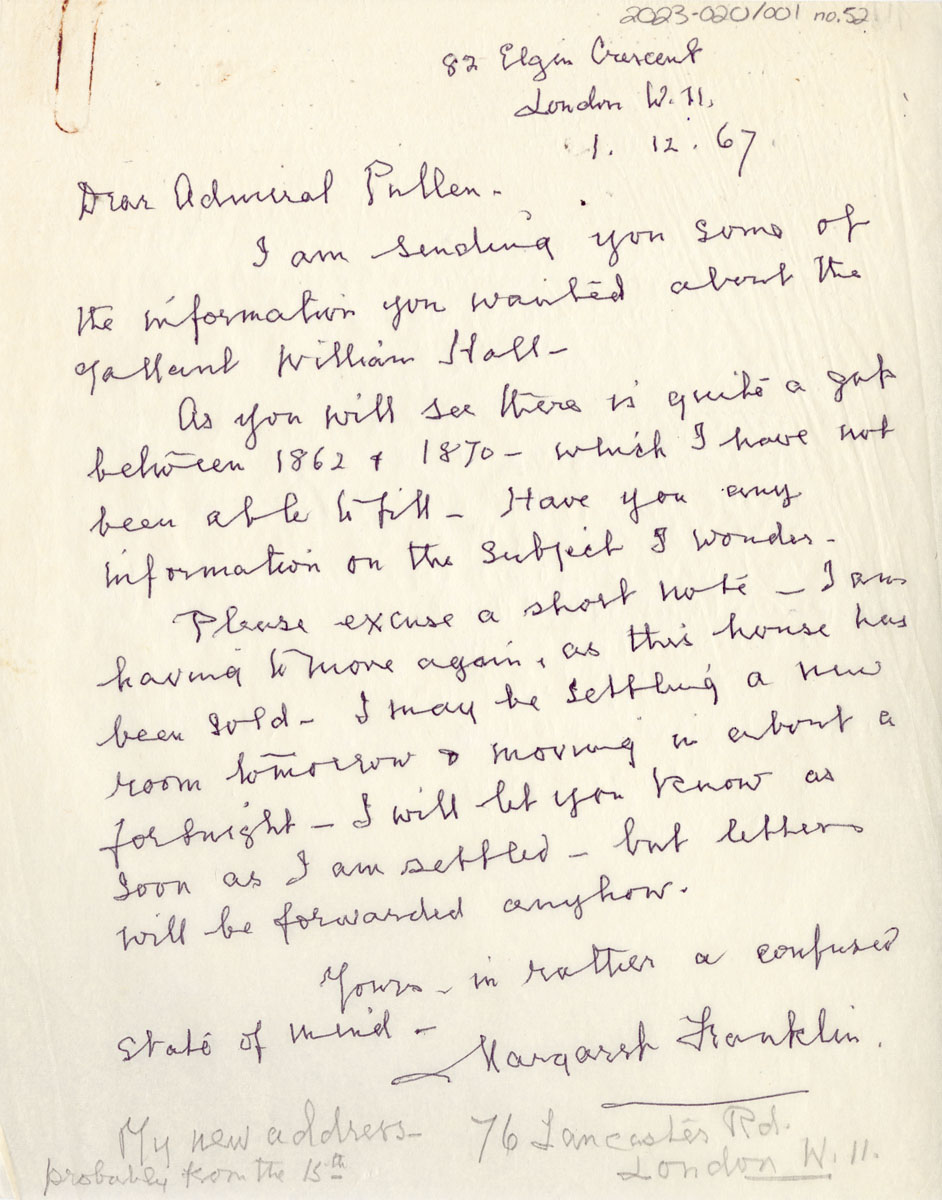 2023-020/001 no.52
82 Elgin Crescent
London W.11.
1. 12. 67.
Dear Admiral Pullen -
I am sending you some of
the information you wanted about the
gallant William Hall -
As you will see there is quite a gap
between 1862 & 1870 - which I have not
been able to fill - Have you any
information on the subject I wonder -
Please excuse a short note - I am
having to move again, as this house has
been sold - I may be settling a new
room tomorrow & moving in about a
fortnight - I will let you know as
soon as I am settled - but letters
will be forwarded anyhow.
Yours - in rather a confused
state of mind -
Margaret Franklin.
My new address - 76 Lancaster Rd.
probably from the 15th London W.11.